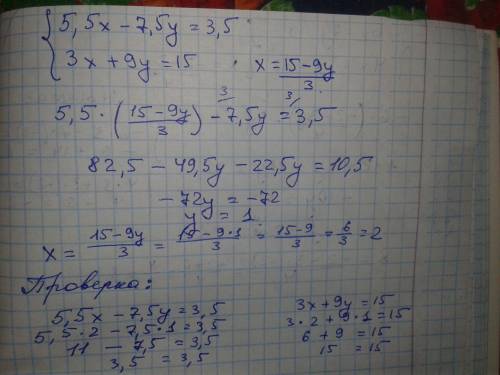 5,5x − 7,5y = 3,5
3x + 9y = 15    x = (15−9y)/3
5,5 · ((15−9y)/3) − 7,5y = 3,5    3/    3/
82,5 − 49,5y − 22,5y = 10,5
−72y = −72
y = 1
x = (15−9y)/3 = (15−9·1)/3 = (15−9)/3 = 6/3 = 2
Проверка:
5,5x − 7,5y = 3,5
5,5·2 − 7,5·1 = 3,5
11 − 7,5 = 3,5
3,5 = 3,5
3x + 9y = 15
3·2 + 9·1 = 15
6 + 9 = 15
15 = 15